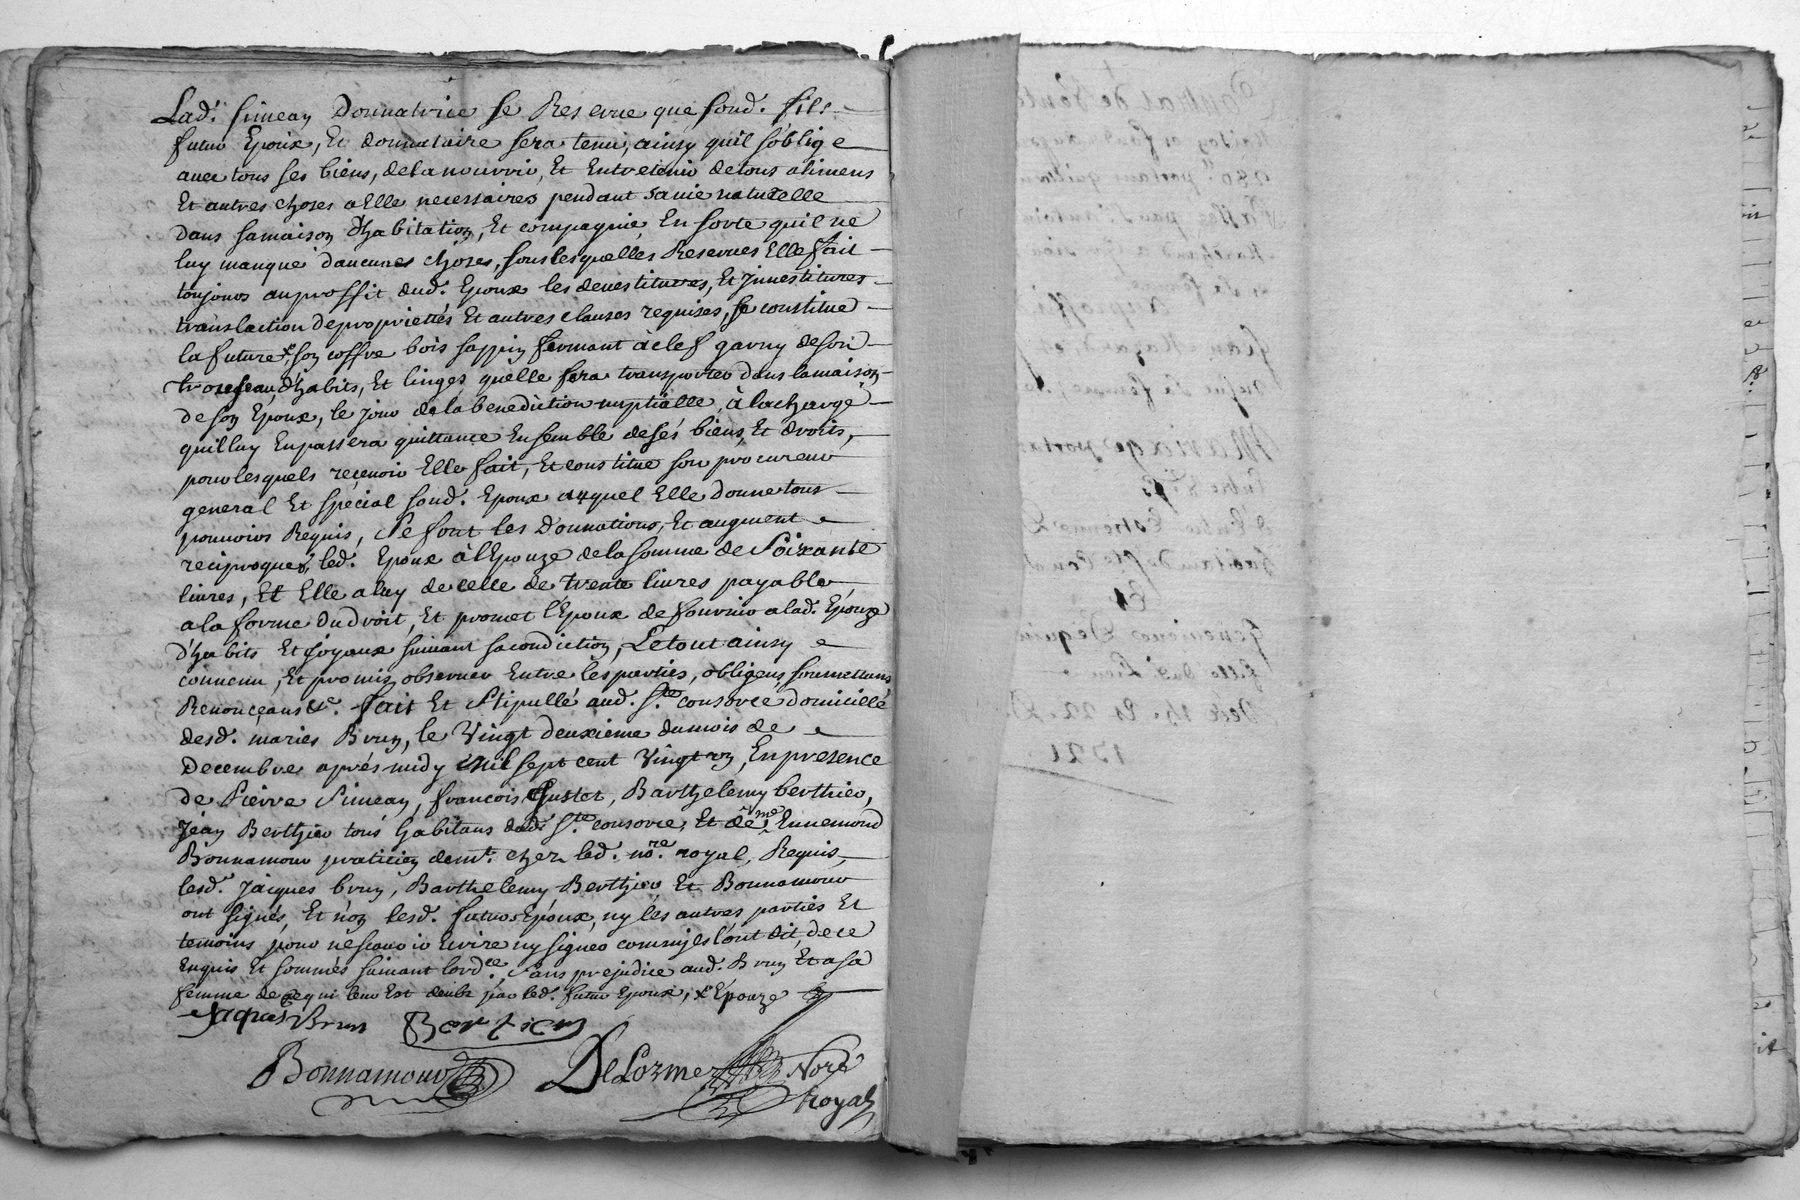 Lad.e simean Donnatrice se Reserve que sond. fils
futur Epoux, Et donnataire sera tenu, ainsy quil s'oblige
avec tous ses biens, de la nourrir, Et Entretenir de tous alimens
Et autres choses a Elle necessaires pendant sa vie naturelle
dans sa maison d'habitation, Et compagnie, En sorte quil ne
luy manque d'aucunes choses, sous lesquelles Reserves Elle fait
toujours au proffit dud. Epoux les devestitures, Et jnvestitures
translaction de propriettés Et autres clauses requises, se constitue
la future x son coffre bois sappin fermant à clef garny de son
trousseau, d'habits, Et linges quelle fera transporter dans la maison
de son Epoux, le jour de la benediction nuptialle, à la charge
quil luy En passera quittance Ensemble de sés biens, Et droits,
pour lesquels récevoir Elle fait, Et constitue son procureur
general Et spécial sond. Epoux auquel Elle donne tous
pouvoirs Requis, Se font les Donnations, Et augment
reciproques, led. Epoux à l'Epouze de la somme de Soixante
livres, Et Elle a luy de celle de trente livres payable
a la forme du droit, Et promet l'Epoux de fournir a lad. Epouze
d'habits Et joyaux suivant sa condiction, Le tout ainsy
convenu, Et promis observer Entre les parties, obligens, soumettans
Renonçans &c. fait Et stipullé aud. S.te consorce domicille
desd. mariés Brun, le Vingt deuxième du mois de
Decembre après midy mil sept cent Vingt un, En presence
de Pierre Simean, francois Justet, Barthelemy berthier,
Jéan Berthier tous habitans dud. S.te consorce, Et de me Ennemond
Bonnamour praticien demt. chez led. no.re royal, Requis,
lesd. Jaiques brun, Barthelemy Berthier Et Bonnamour
ont signés, Et non lesd. futurs Epoux, ny lés autres parties Et
temoins pour nésçavoir Ecrire ny signer comm'jls l'ont dit, de ce
Enquis Et sommés suivant lord.ce. Sans prejudice aud. Brun Et a sa
femme de ce qui leur Est deubt par led. futur Epoux, x Epouze
Jaques Brun Bertier
Bonnamour DeLorme Nore
royal